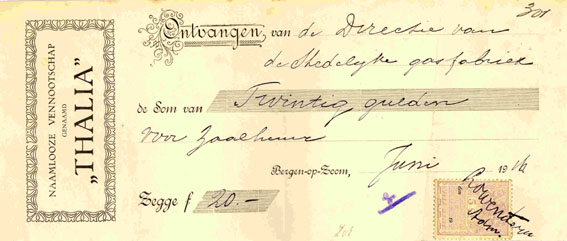 NAAMLOOZE VENNOOTSCHAP
GENAAMD
„THALIA”
301
Ontvangen, van de Directie van
de Stedelijke gasfabriek
de Som van Twintig gulden
voor Zaalhuur
Bergen-op-Zoom, Juni 1916
Zegge f 20.-
Adm.